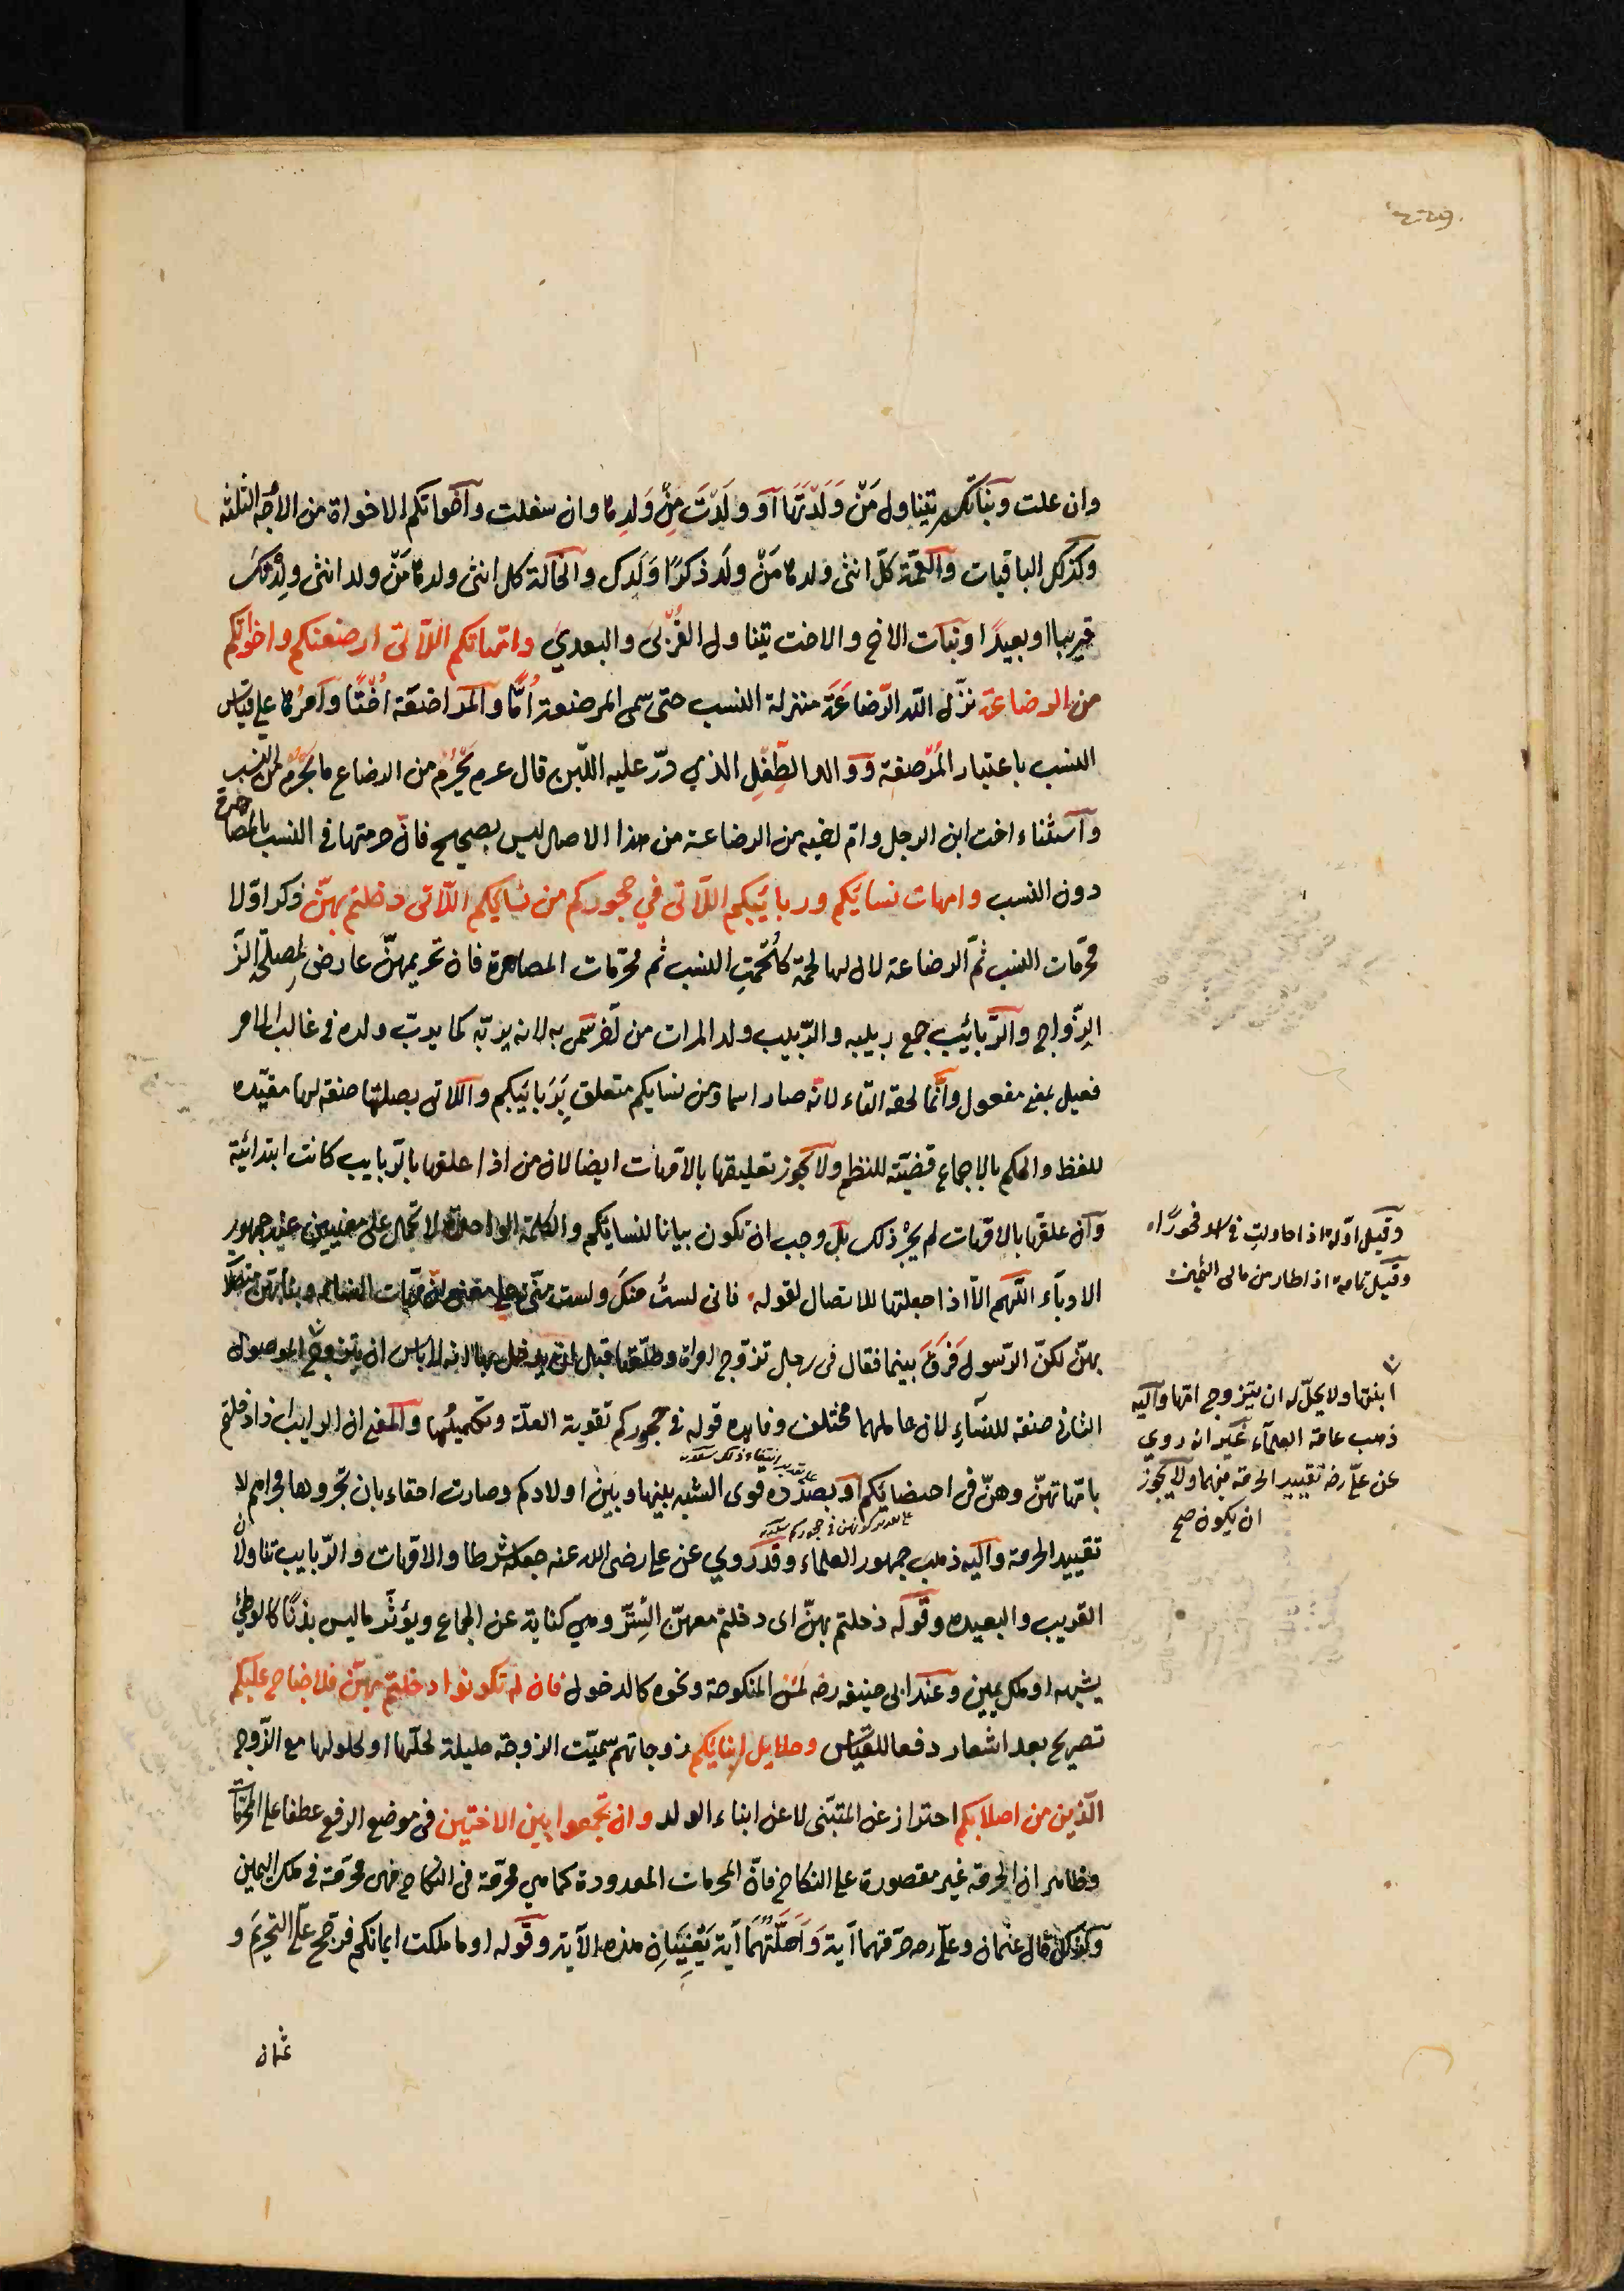 وان علت وبناتكم يتناول مَنْ وَلَدَتَهَا اَو وَلَدَتَ مِنْ وَلَدِها وان سفلت وآخواتكم الاخواة من الاوجه الثلثه
وكذلك الباقيات والعمّة كلّ انثى ولدها مَنْ ولَد ذكرًا وَلَدك والخالة كل انثى ولدها مَنْ ولد انثى ولدتك
قريبا او بعيدًا وبنات الاخ والاخت يتناول القُرْبىَ والبعديَ وامّهاتكم اللّاتى ارضعنكم واخواتكم
من الرضاعة نزّل الله الرّضاعَةَ منزلة النسب حتى سمى المرضعة اُمًّا والمراضعة اُختًا وآمرُها على قياس
النسب باعتبار المُرْضعة ووالد الطِفلِ الذي درّ عليه اللّبن قال عم يَحْرُمُ من الرضاع ما يَحْرُمُ من النسب
وآستثناء اخت ابن الرجل وامّ اخيه من الرضاعة من هذا الاصل ليس بصحيح فانّ حرمتها فى النسب بالمصاهرة
دون النسب وامهات نسائكم وربائبكم اللّآتى في حجوركم من نسائكم اللّاتى دخلتم بهنّ ذكر اوّلا
محرّمات النسب ثمّ الرضاعة لان لها لحمة كلُحْمَتِ النسب ثم محرّمات المصاهرة فان تحريمهنّ عارض لمصلحة الزّ
الزّواج والرّبائيب جمع ربيبه والرّبيب ولد المرات من آخر سُمّى به لانه يربّه كما يربّ ولده فى غالب الامر
فعيل بمعنى مفعول وانّما لحقه التّاء لانّه صار اسما ومن نسايكم متعلق بِرَبَائيبكم واللاتى بصلتها صفة لها مقيّده
للفظ والحكم بالاجماع قضيّة للنظم ولا يجوز تعليقها بالامّهات ايضا لان من اذا علقها بالرّبايب كانت ابتدائية
وآن علقها بالامّهات لم يَجُزْ ذلك بل وجب ان تكون بيانا لنسايكم والكلمة الواحدة لا تحمل على معنيين عند جمهور
الادباَء اللّهم الّا اذا جعلتها للاتصال لقوله فانى لستُ منكَ ولست منّى على معنى انّ امّهات النساء وبناتهنّ متصلة
بهنّ لكنّ الرّسول فَرَقَ بينما فقال فى رجل تزوّج امراة وطلّقها قبل ان يدخل بها انه لا باس ان يتزوج الموصول
الثانى صفة للنسآءِ لان عاملهما مختلف وفايده قوله فى حجوركم تقوية العلّة وتكميلُها والمعنى ان الربايب اذا دخلتم
على تقدير انتفاء ذلك
بامّهاتهنّ وهنّ فى احتضانكم او بصدده قوى الشبه بينها وبين اولادكم وصارت احقاء بان تجروها مجراهم لا
على تقدير كونهن فى حجوركم
تقييد الحرمة واليه ذهب جمهور العلماء وقد رُوي عن على رضى الله عنه جعله شرطا والامّهات والرّبايب تناولا
القريب والبعيده وقوله دخلتم بهنّ اى دخلتم معهنّ السِّترَ وهي كناية عن الجماع ويؤثّر ما ليس بِزنًا كالوطئِ
بشبهه او ملك يمين وعند ابى حنيفه رضه لمس المنكوحة ونحوه كالدخول فان لم تكونوا دخلتم بهنّ فلا جناح عليكم
تصريح بعد اشعار دفعا للقياس وحلايل ابنايكم زوجاتهم سميّت الزوجة حليلة لحلّها او لحلولها مع الزّوج
الّذين من اصلابكم احتراز عن المتبنّى لا عن ابناء الولد وان تجمعوا بين الاختين فى موضع الرفع عطفا على المحرّمات
وظاهر ان الحرمة غير مقصورة على النكاح فانّ المحرمات المعدودة كما هي محرّمة فى النكاح فهى محرّمة فى ملك اليمين
وكذلك قال عثمان وعلّى رضه حرّمتهما آيةَ وَاَحَلَّتْهُمَا آية يَعْنِيَانِ هذه الآية وقوله او ما ملكت ايمانكم فرجّح علّى التحريمَ و
عثمان
وقيل اوّله اذا حاولت فى اسد فجورًا
وقيل تمامه اذا طار من مالى الثمين
ابنتها ولا يحلّ له ان يتزوج امّها واليه
ذهب عامة العلمآء غير انه روي
عن علّى رضه تقييد الحرمة فيهما ولا يجوز
ان يكون صح